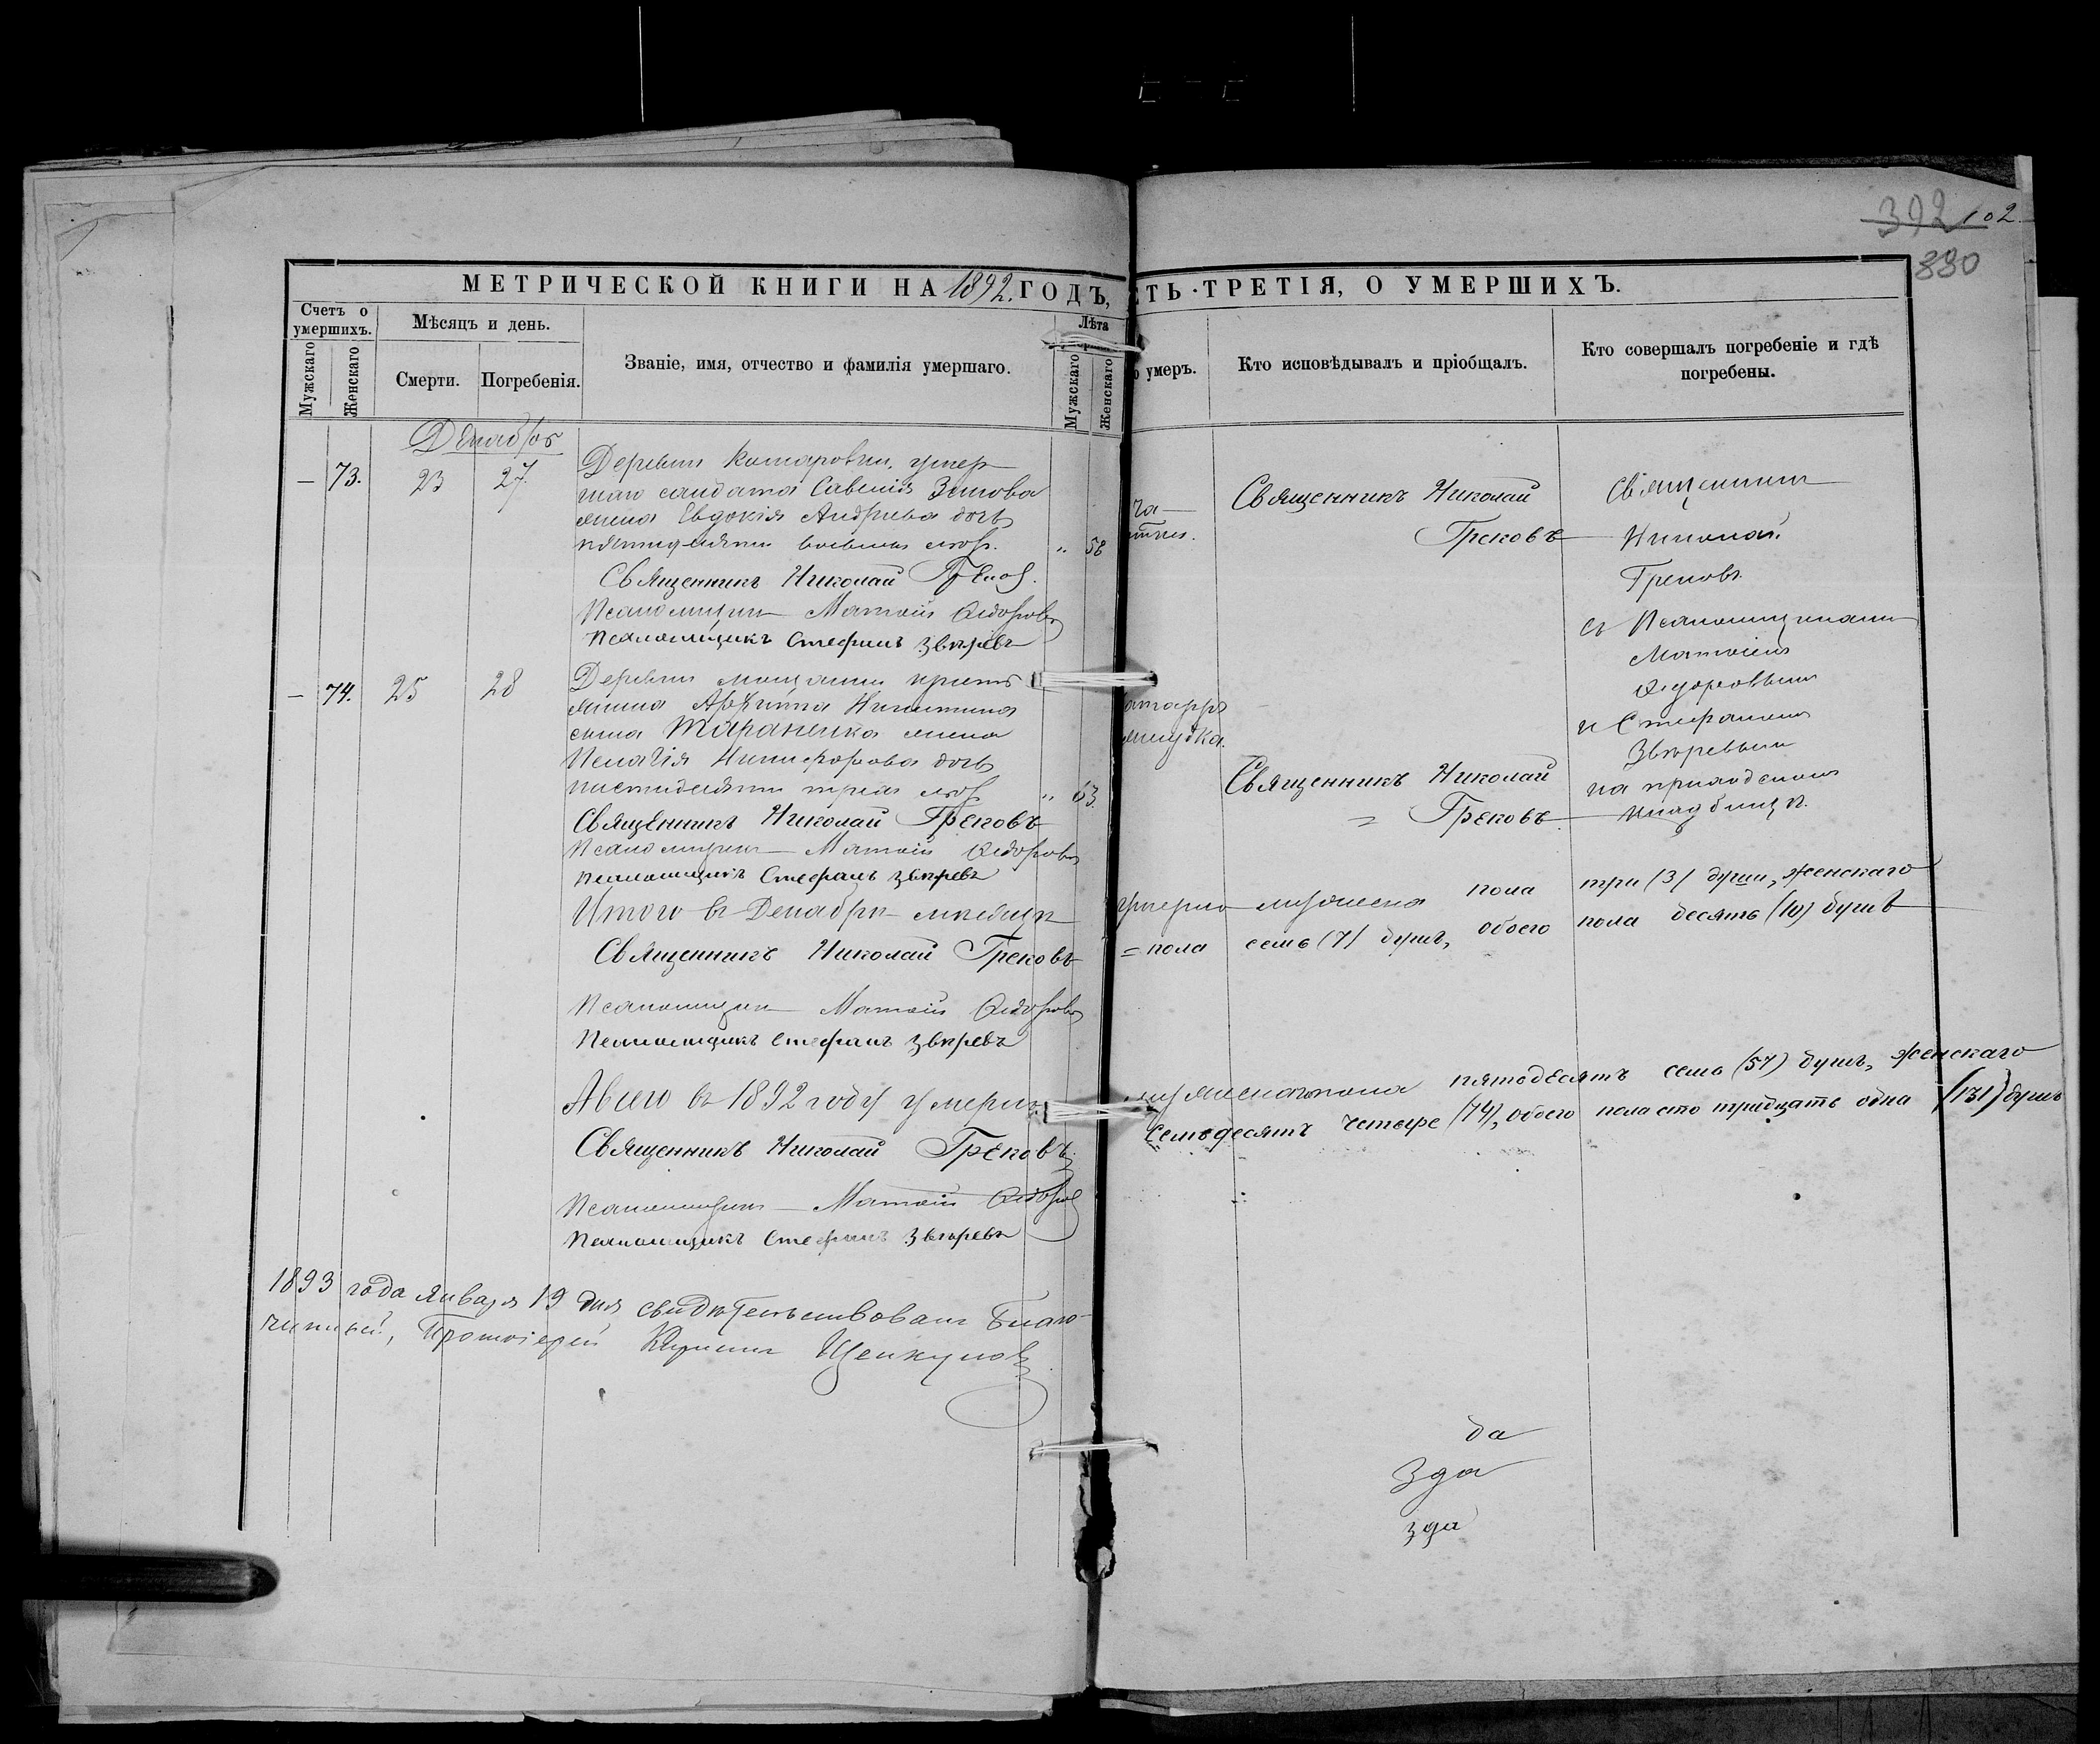 392 102.
830
МЕТРИЧЕСКОЙ КНИГИ НА 1892. ГОДЪ, ТЬ ТРЕТІЯ, О УМЕРШИХЪ.
Счетъ о умершихъ.
Мужскаго
Женскаго
Мѣсяцъ и день.
Смерти.
Погребенія.
Званіе, имя, отчество и фамилія умершаго.
Лѣта
Мужскаго
Женскаго
умеръ.
Кто исповѣдывалъ и пріобщалъ.
Кто совершалъ погребеніе и гдѣ
погребены.
Декабрь
— 73. 23 27.
Деревни Комаровки, умер
шаго солдата Савелія Зотова
жена Евдокія Андреева дочь
пятидесяти восьми лѣтъ. " 58
Священникъ Николай Грековъ.
Псаломщикъ Матѳій Ѳедоровъ
Псаломщикъ Стефанъ Звѣревъ
ча-
отки.
Священникъ Николай
Грековъ
Священникъ
Николай
Грековъ
съ Псаломщиками
Матѳіемъ
Ѳедоровымъ
и Стефаномъ
Звѣревымъ
на приходскомъ
кладбищѣ.
— 74. 25 28
Деревни крестья
нина Никитина
сына Тараненка жена
Пелагія Никифорова дочь
шестидесяти трехъ лѣтъ " 63.
Священникъ Николай Грековъ
Псаломщикъ Матѳій Ѳедоровъ
Псаломщикъ Стефанъ Звѣревъ
атарръ
желудка.
Священникъ Николай
= Грековъ
Итого въ Декабрѣ мѣсяцѣ умерло мужеска пола три (3) души, женскаго
= пола семь (7) душъ, обоего пола десять (10) душъ
Священникъ Николай Грековъ
Псаломщикъ Матѳій Ѳедоровъ
Псаломщикъ Стефанъ Звѣревъ
А всего въ 1892 году умерло мужеска пола пятьдесятъ семь (57) душъ, женскаго
семьдесятъ четыре (74), обоего пола сто тридцать одна (131) душъ
Священникъ Николай Грековъ
Псаломщикъ Матѳій Ѳедоровъ
Псаломщикъ Стефанъ Звѣревъ
1893 года Января 19 дня свидѣтельствовалъ Благо-
чинный, Протоіерей
да
Зда
зда